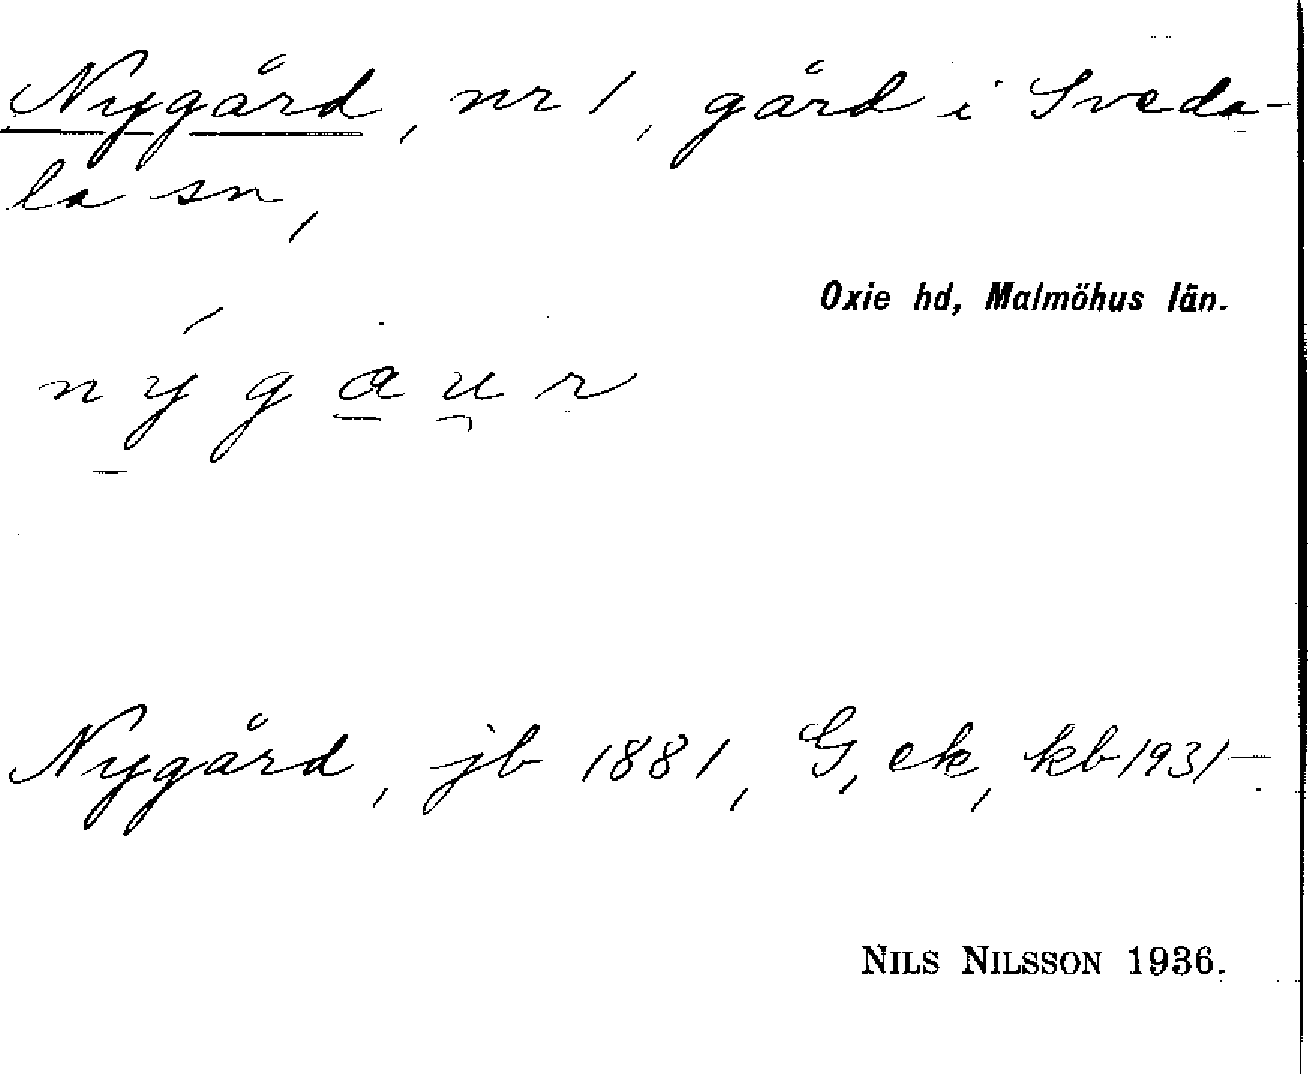 Nygård, nr 1, gård i Sveda-
la sn,
Oxie hd, Malmöhus län.
nýgau̯r
Nygård, jb 1881, G, ek, kb 1931-
NILS NILSSON 1936.